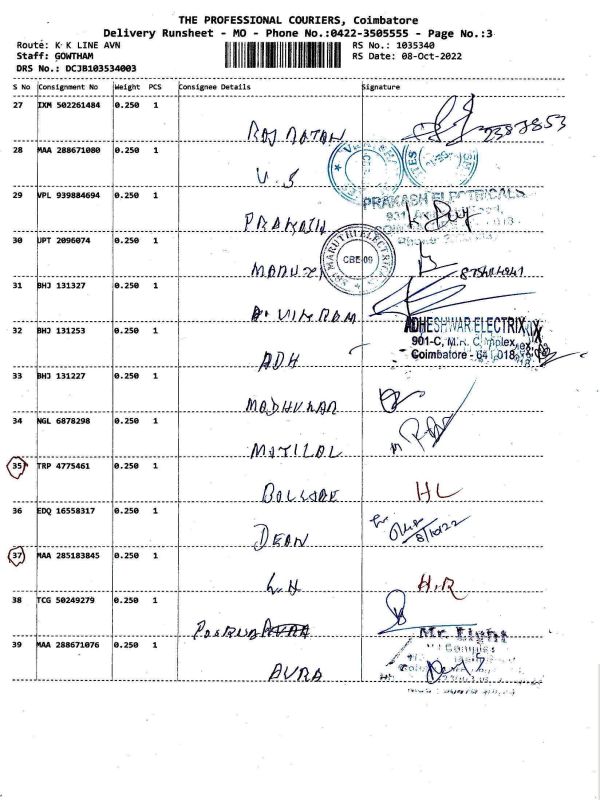 THE PROFESSIONAL COURIERS, Coimbatore
Delivery Runsheet - MO - Phone No.:0422-3505555 - Page No.:3
Route: K K LINE AVN
RS No.: 1035340
Staff: GOWTHAM
RS Date: 08-Oct-2022
DRS No.: DCJB103534003
S No Consignment No Weight PCS Consignee Details Signature
27 IXM 502261484 0.250 1
RAJ RATAN
28 MAA 288671080 0.250 1
V. S
29 VPL 939884694 0.250 1
PRAKASH ELECTRICALS
PRAKASH
30 UPT 2096074 0.250 1
SRI MARUTHI ELECTRICALS
CBE-09
MARUTI
31 BHJ 131327 0.250 1
VIKRAM
32 BHJ 131253 0.250 1
ADHESHWAR ELECTRIX
901-C, M.R. Complex,
Coimbatore - 641 018
ADH
33 BHJ 131227 0.250 1
MADHUKAR
34 NGL 6878298 0.250 1
MOTILAL
35 TRP 4775461 0.250 1
HL
36 EDQ 16558317 0.250 1
8/10/22
DEAN
37 MAA 285183845 0.250 1
L.H H.R
38 TCG 50249279 0.250 1
39 MAA 288671076 0.250 1
Mr. Light
AVRA